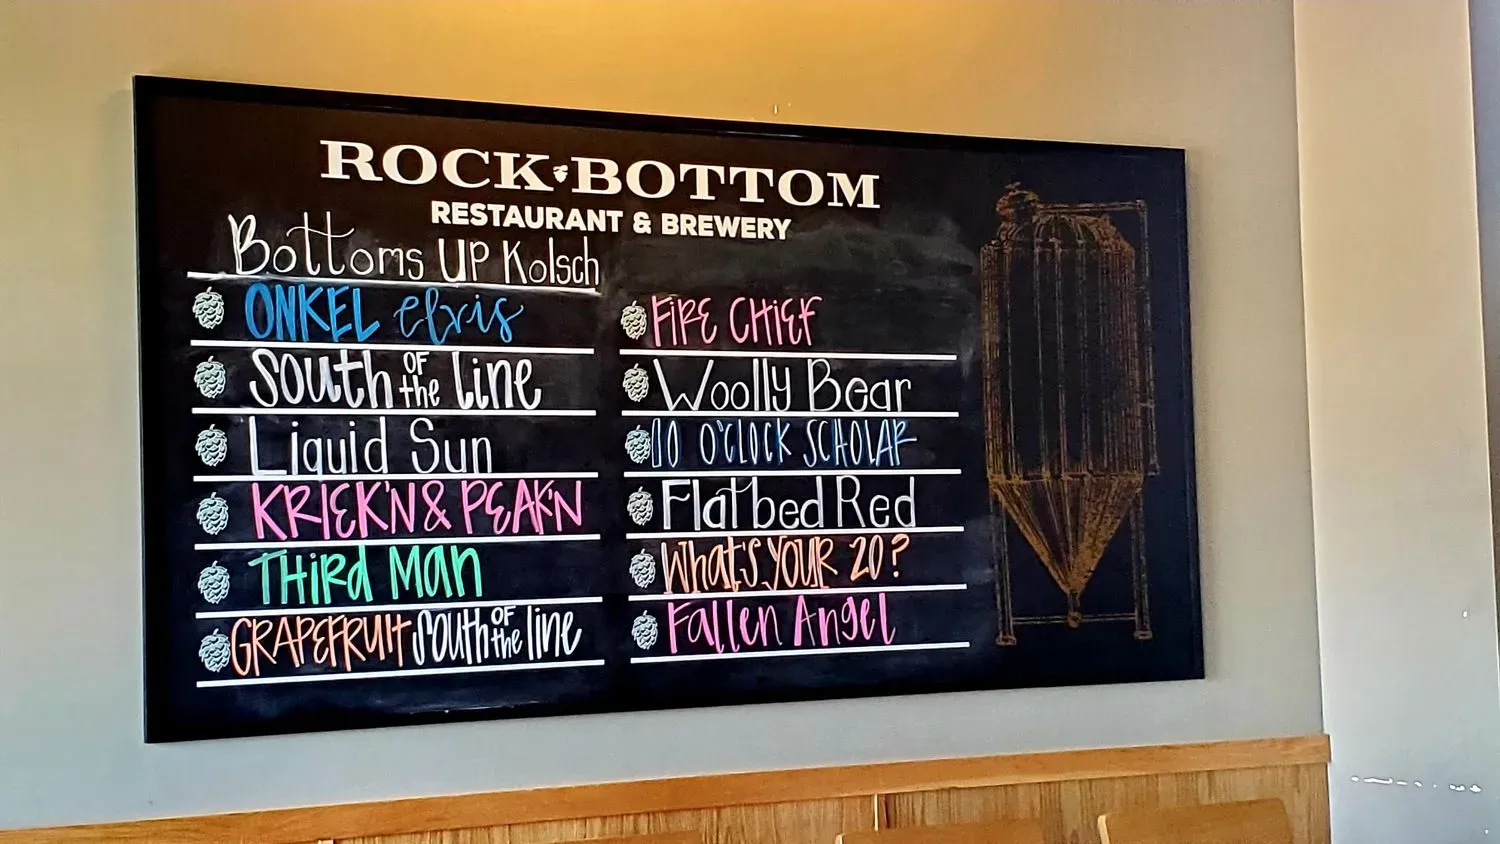 ROCK BOTTOM
RESTAURANT & BREWERY
Bottoms UP Kolsch
ONKEL elvis
South OF the line
Liquid Sun
KRIEK'N & PEAK'N
THIRD MAN
GRAPEFRUIT South OF the line
FIRE CHIEF
Woolly Bear
10 O'CLOCK SCHOLAR
Flatbed Red
What's YOUR 20?
Fallen Angel